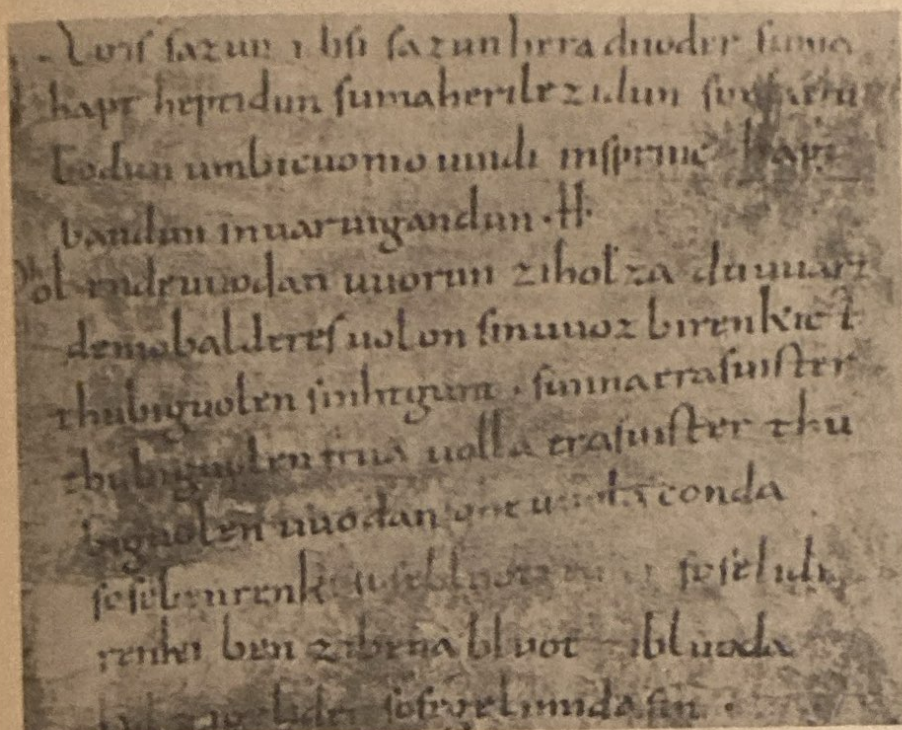 Eiris sazun idisi sazun hera duoder suma
hapt heptidun sumaherilezidun sumaclu
bodun umbicuonio uuidi insprinc hapt
bandun inuaruigandun ·H·
Phol endeuuodan uuorun ziholza du uuart
demobalderesuolon sinuuoz birenkict
thubiguolen sinhtgunt · sunnaerasuister
thubiguolen friia uolla erasuister thu
biguolen uuodan sohe uuola conda
sosebenrenki sosebluotrenki soselidi
renki ben zibena bluot zibluoda
lid zigeliden sosegelimidasin ·